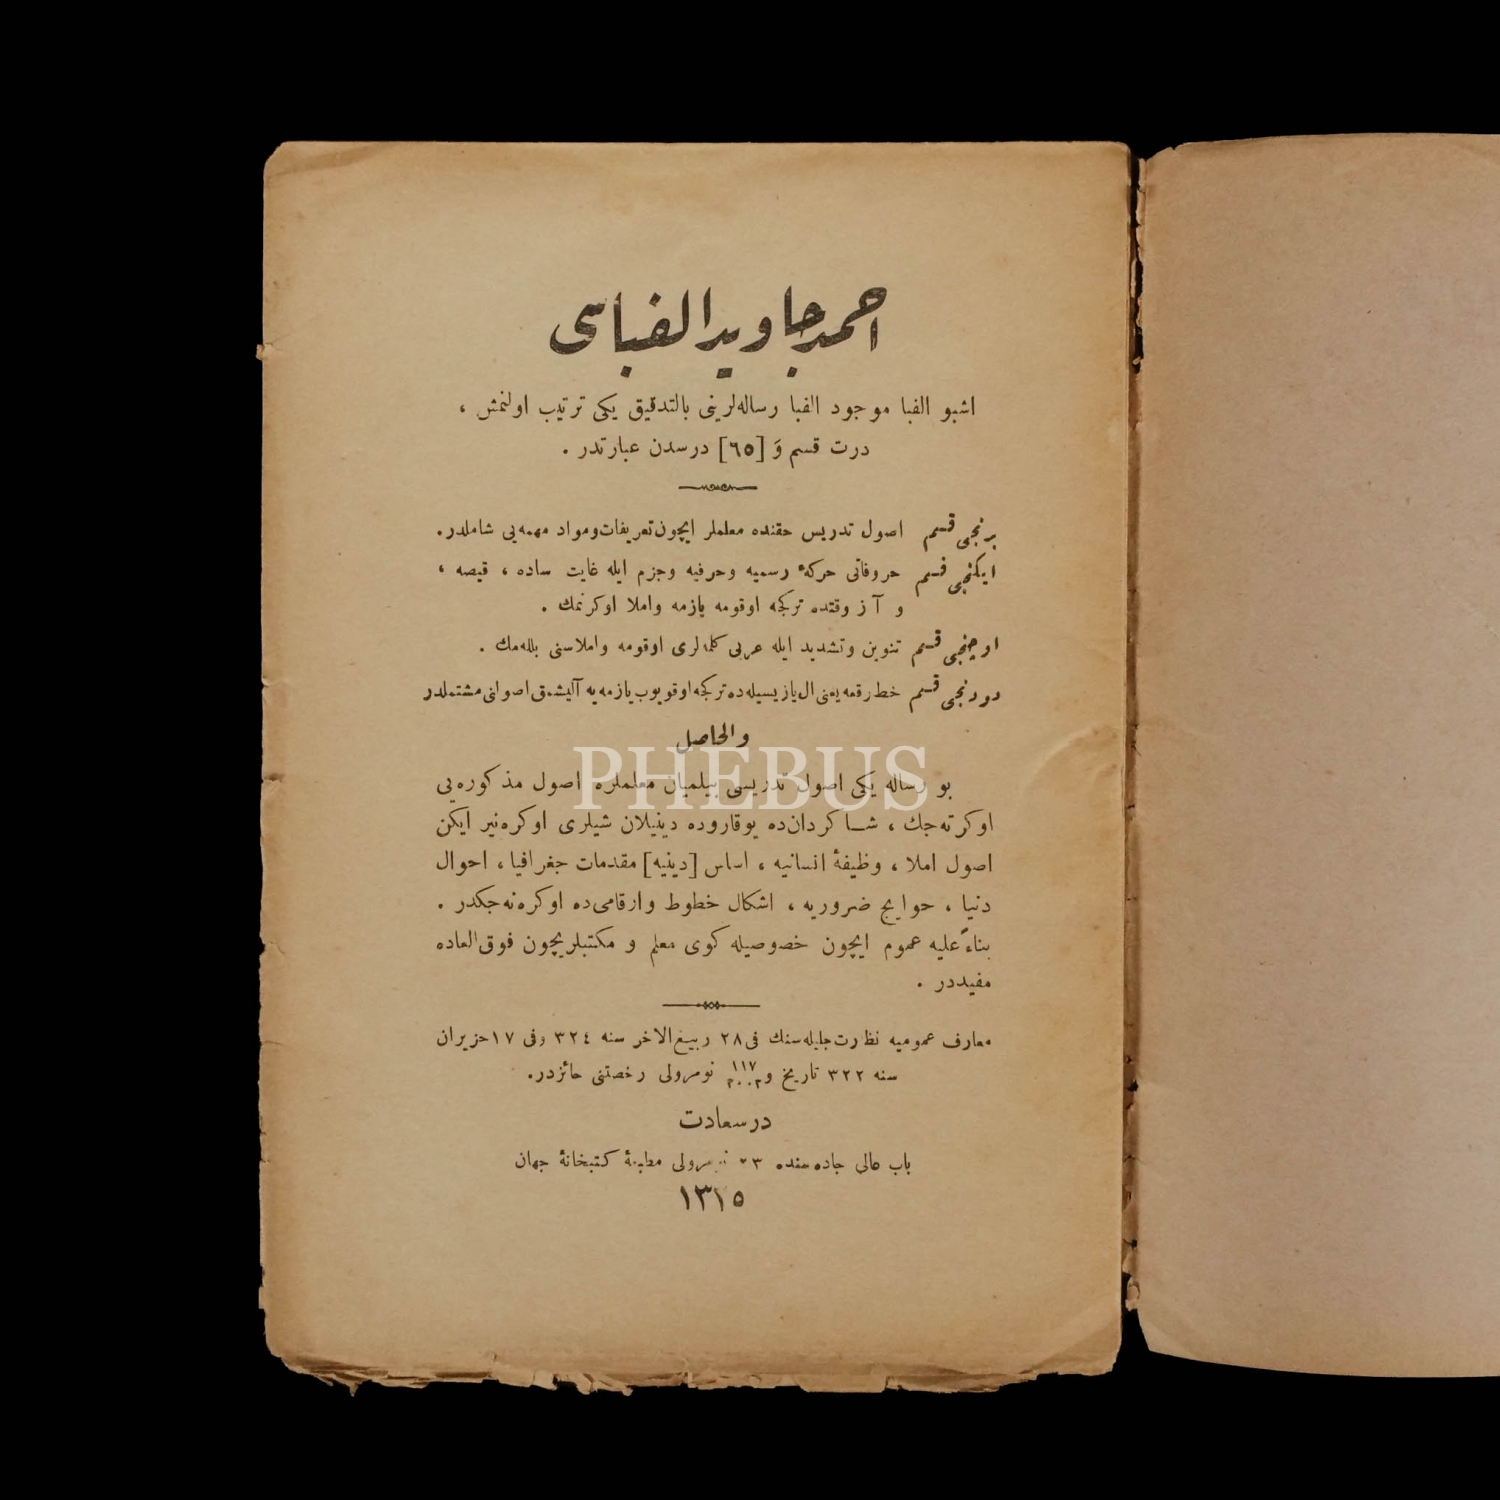 احمد جاويد الفباسى
اشبو الفبا موجود الفبا رساله‌لرينى بالتدقيق يكى ترتيب اولنمش ،
درت قسم وَ [٦٥] درسدن عبارتدر .
برنجى قسم اصول تدريس حقنده معلملر ايچون تعريفات ومواد مهمه‌يى شاملدر.
ايكنجى قسم حروفاتى حركهٔ رسميه وحرفيه وجزم ايله غايت ساده ، قيصه ،
و آز وقتده تركجه اوقومه يازمه واملا اوكرنمك .
اوچنجى قسم تنوين وتشديد ايله عربى كلمه‌لرى اوقومه واملاسنى بلله‌مك .
دورنجى قسم خط رقعه يعنى ال يازيسيله ده تركجه اوقويوب يازمه‌يه آليشمق اصولنى مشتملدر
والحاصل
بو رساله يكى اصول تدريسى بيلميان معلملره اصول مذكوره‌يى
اوكرته‌جك ، شاكردان ده يوقاروده دينيلان شيلرى اوكره‌نير ايكن
اصول املا ، وظيفهٔ انسانيه ، اساس [دينيه] مقدمات جغرافيا ، احوال
دنيا ، حوايج ضروريه ، اشكال خطوط وارقامى ده اوكره‌نه‌جكدر .
بناءً عليه عموم ايچون خصوصيله كوى معلم و مكتبلريچون فوق‌العاده
مفيددر .
معارف عموميه نظارت جليله‌سنك فى ٢٨ ربيع‌الاخر سنه ٣٢٤ وفى ١٧ حزيران
سنه ٣٢٢ تاريخ و ١١٧ نومرولى رخصتنى حائزدر.
درسعادت
باب عالى جاده‌سنده نومرولى مطبعهٔ كتبخانهٔ جهان
١٣٢٥
PHEBUS